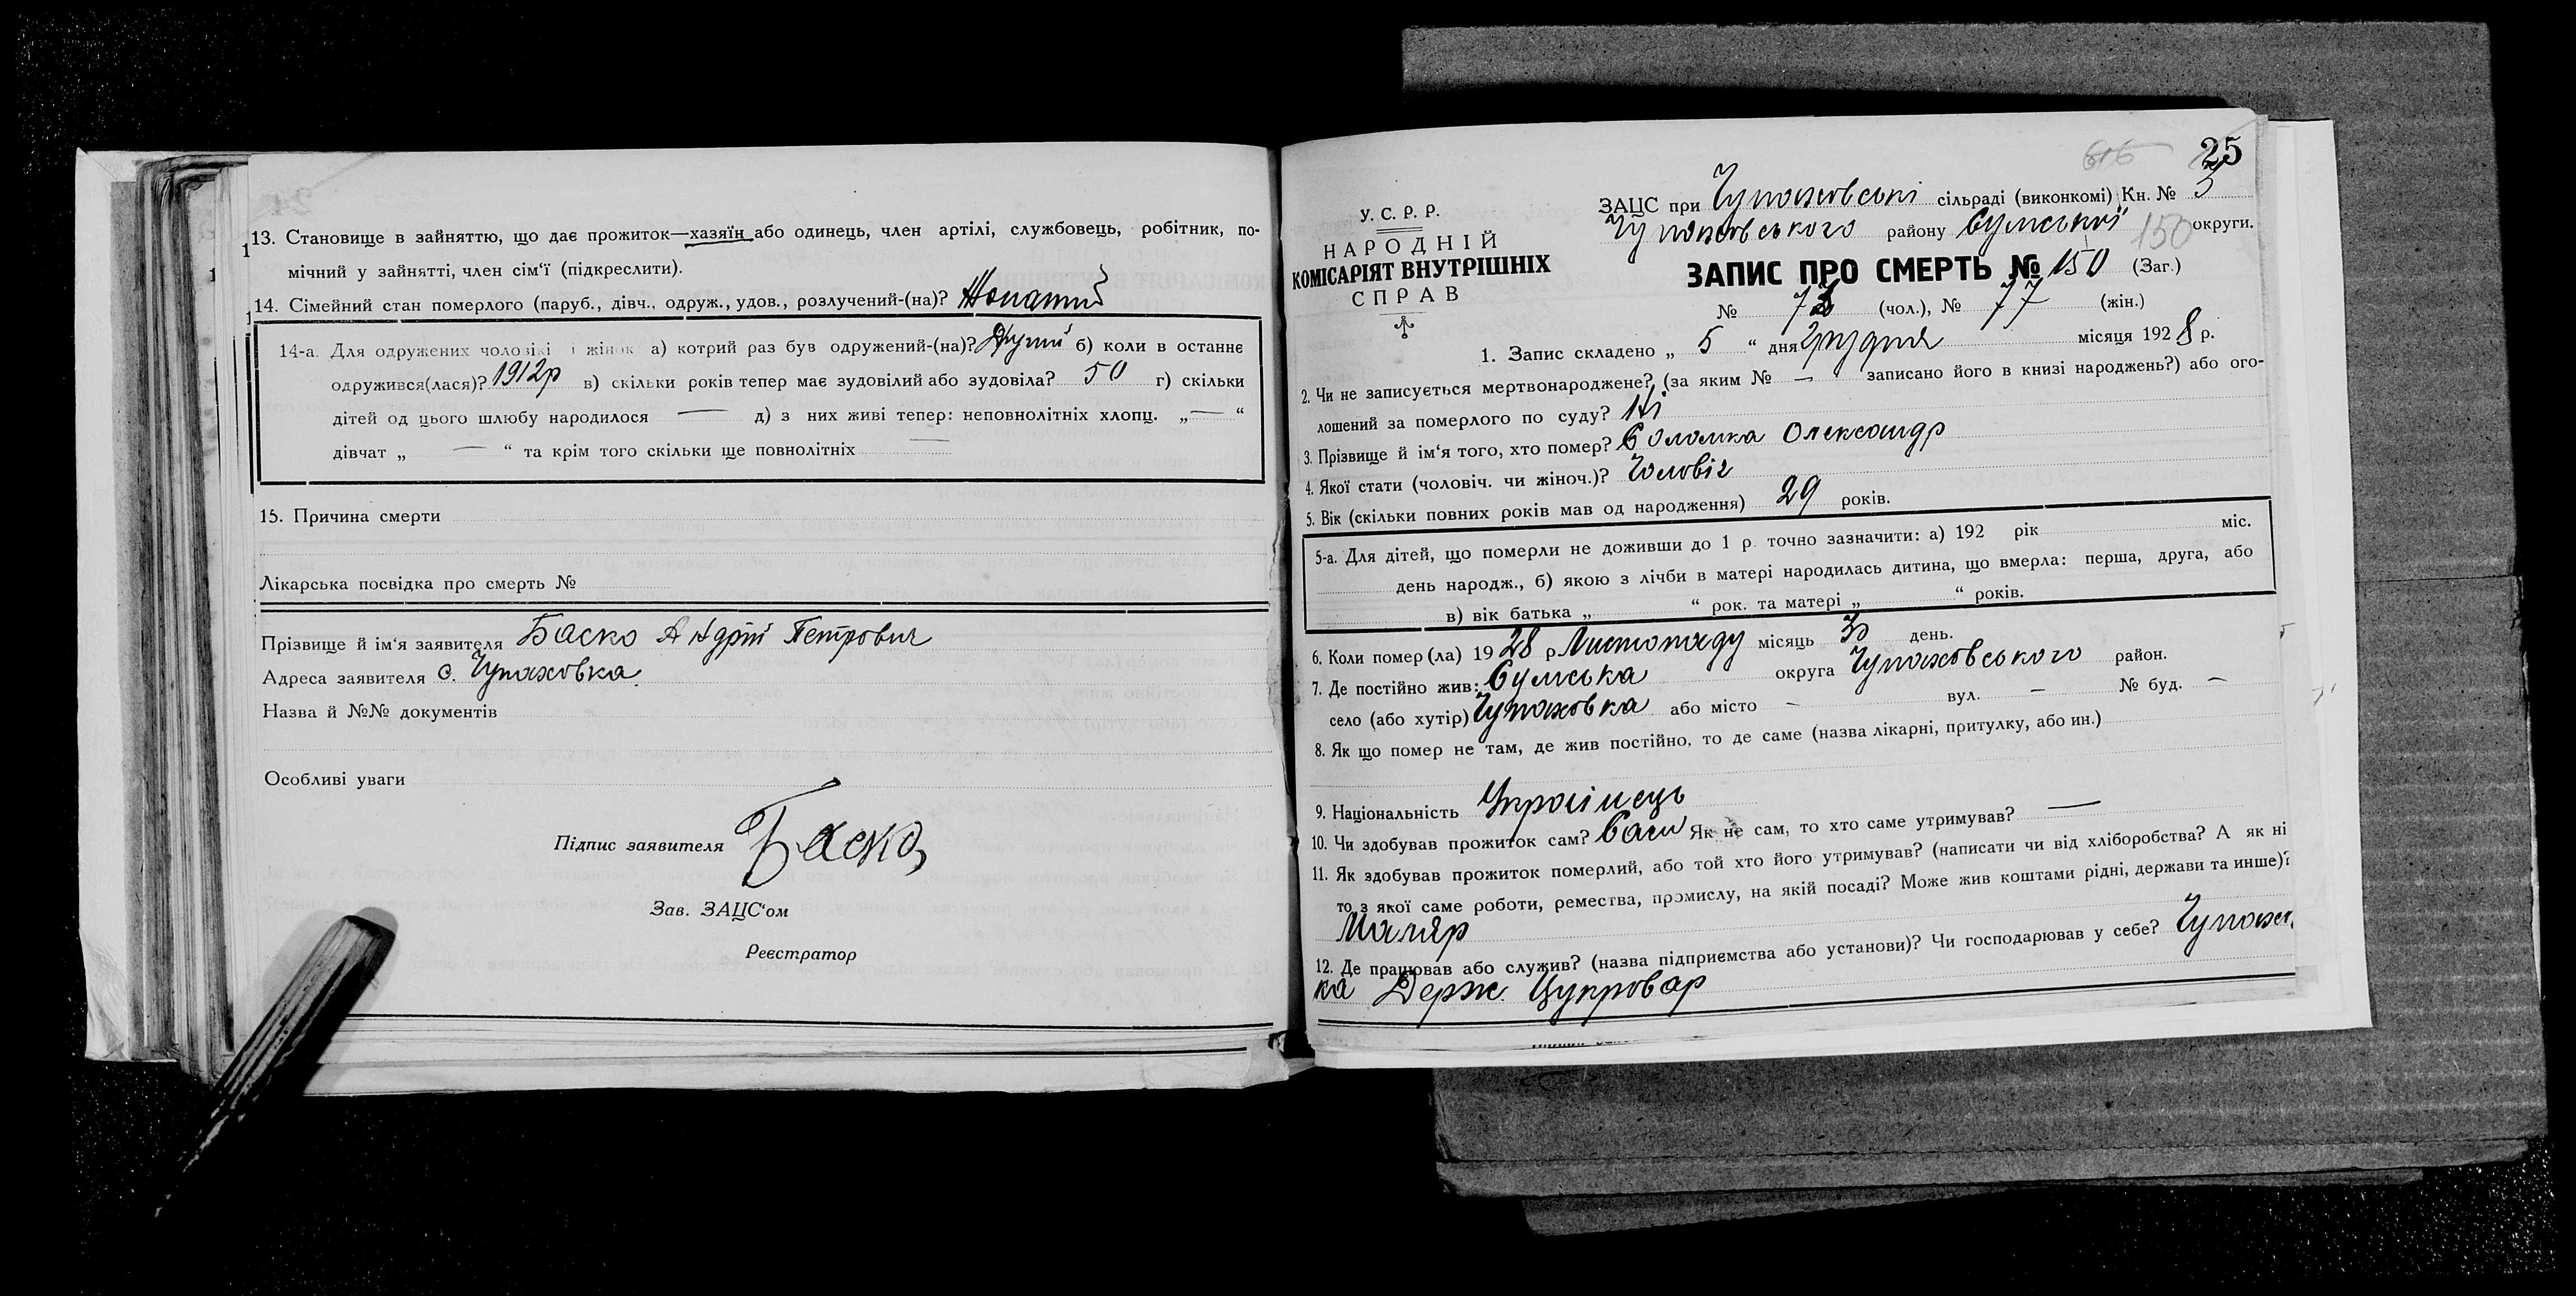 13. Становище в зайняттю, що дає прожиток—хазяїн або одинець, член артілі, службовець, робітник, по-
мічний у зайнятті, член сім'ї (підкреслити).
14. Сімейний стан померлого (паруб., дівч., одруж., удов., розлучений-(на)? Жонатий
14-а. Для одружених чоловікі і жінок а) котрий раз був одружений-(на)? Другий б) коли в останнє
одружився(лася)? 1912р в) скільки років тепер має зудовілий або зудовіла? 50 г) скільки
дітей од цього шлюбу народилося — д) з них живі тепер: неповнолітніх хлопц. „—“
дівчат „ — “ та крім того скільки ще повнолітніх —
15. Причина смерти
Лікарська посвідка про смерть №
Прізвище й ім'я заявителя Баско Андрій Петрович
Адреса заявителя с. Чупаховка
Назва й №№ документів
Особливі уваги
Підпис заявителя Баско
Зав. ЗАЦС'ом
Реєстратор
616 25
У. С. Р. Р.
НАРОДНІЙ
КОМІСАРІЯТ ВНУТРІШНІХ
СПРАВ
ЗАЦС при Чупаховські сільраді (виконкомі) Кн. № 3
Чупаховського району Сумської 150 округи.
ЗАПИС ПРО СМЕРТЬ № 150 (Заг.)
№ 73 (чол.), № 77 (жін.)
1. Запис складено „ 5 “ дня грудня місяця 1928 р.
2. Чи не записується мертвонароджене? (за яким № — записано його в книзі народжень?) або ого-
лошений за померлого по суду? Ні
3. Прізвище й ім'я того, хто помер? Соломка Олександр
4. Якої стати (чоловіч. чи жіноч.)? Чоловіч
5. Вік (скільки повних років мав од народження) 29 років.
5-а. Для дітей, що померли не доживши до 1 р. точно зазначити: а) 192 рік міс.
день народж., б) якою з лічби в матері народилась дитина, що вмерла: перша, друга, або
в) вік батька „ “ рок. та матері „ “ років.
6. Коли помер(ла) 1928 р Листопаду місяць 30 день.
7. Де постійно жив: Сумська округа Чупаховського район.
село (або хутір) Чупаховка або місто — вул. — № буд. —
8. Як що помер не там, де жив постійно, то де саме (назва лікарні, притулку, або ин.)
9. Національність Українець
10. Чи здобував прожиток сам? Сам Як не сам, то хто саме утримував? —
11. Як здобував прожиток померлий, або той хто його утримував? (написати чи від хліборобства? А як ні
то з якої саме роботи, ремества, промислу, на якій посаді? Може жив коштами рідні, держави та инше)?
Маляр
12. Де працював або служив? (назва підприємства або установи)? Чи господарював у себе? Чупахов
ка Держ. Цукровар